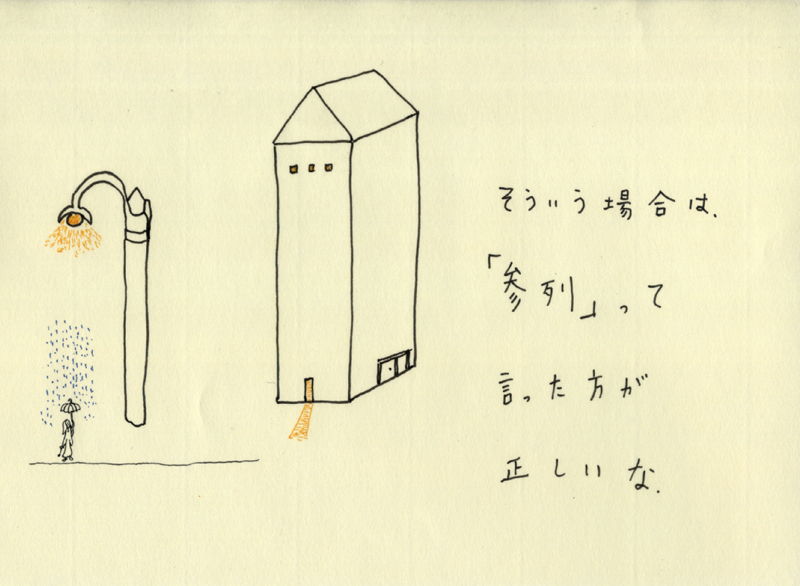 そういう場合は、
「参列」って
言った方が
正しいな。